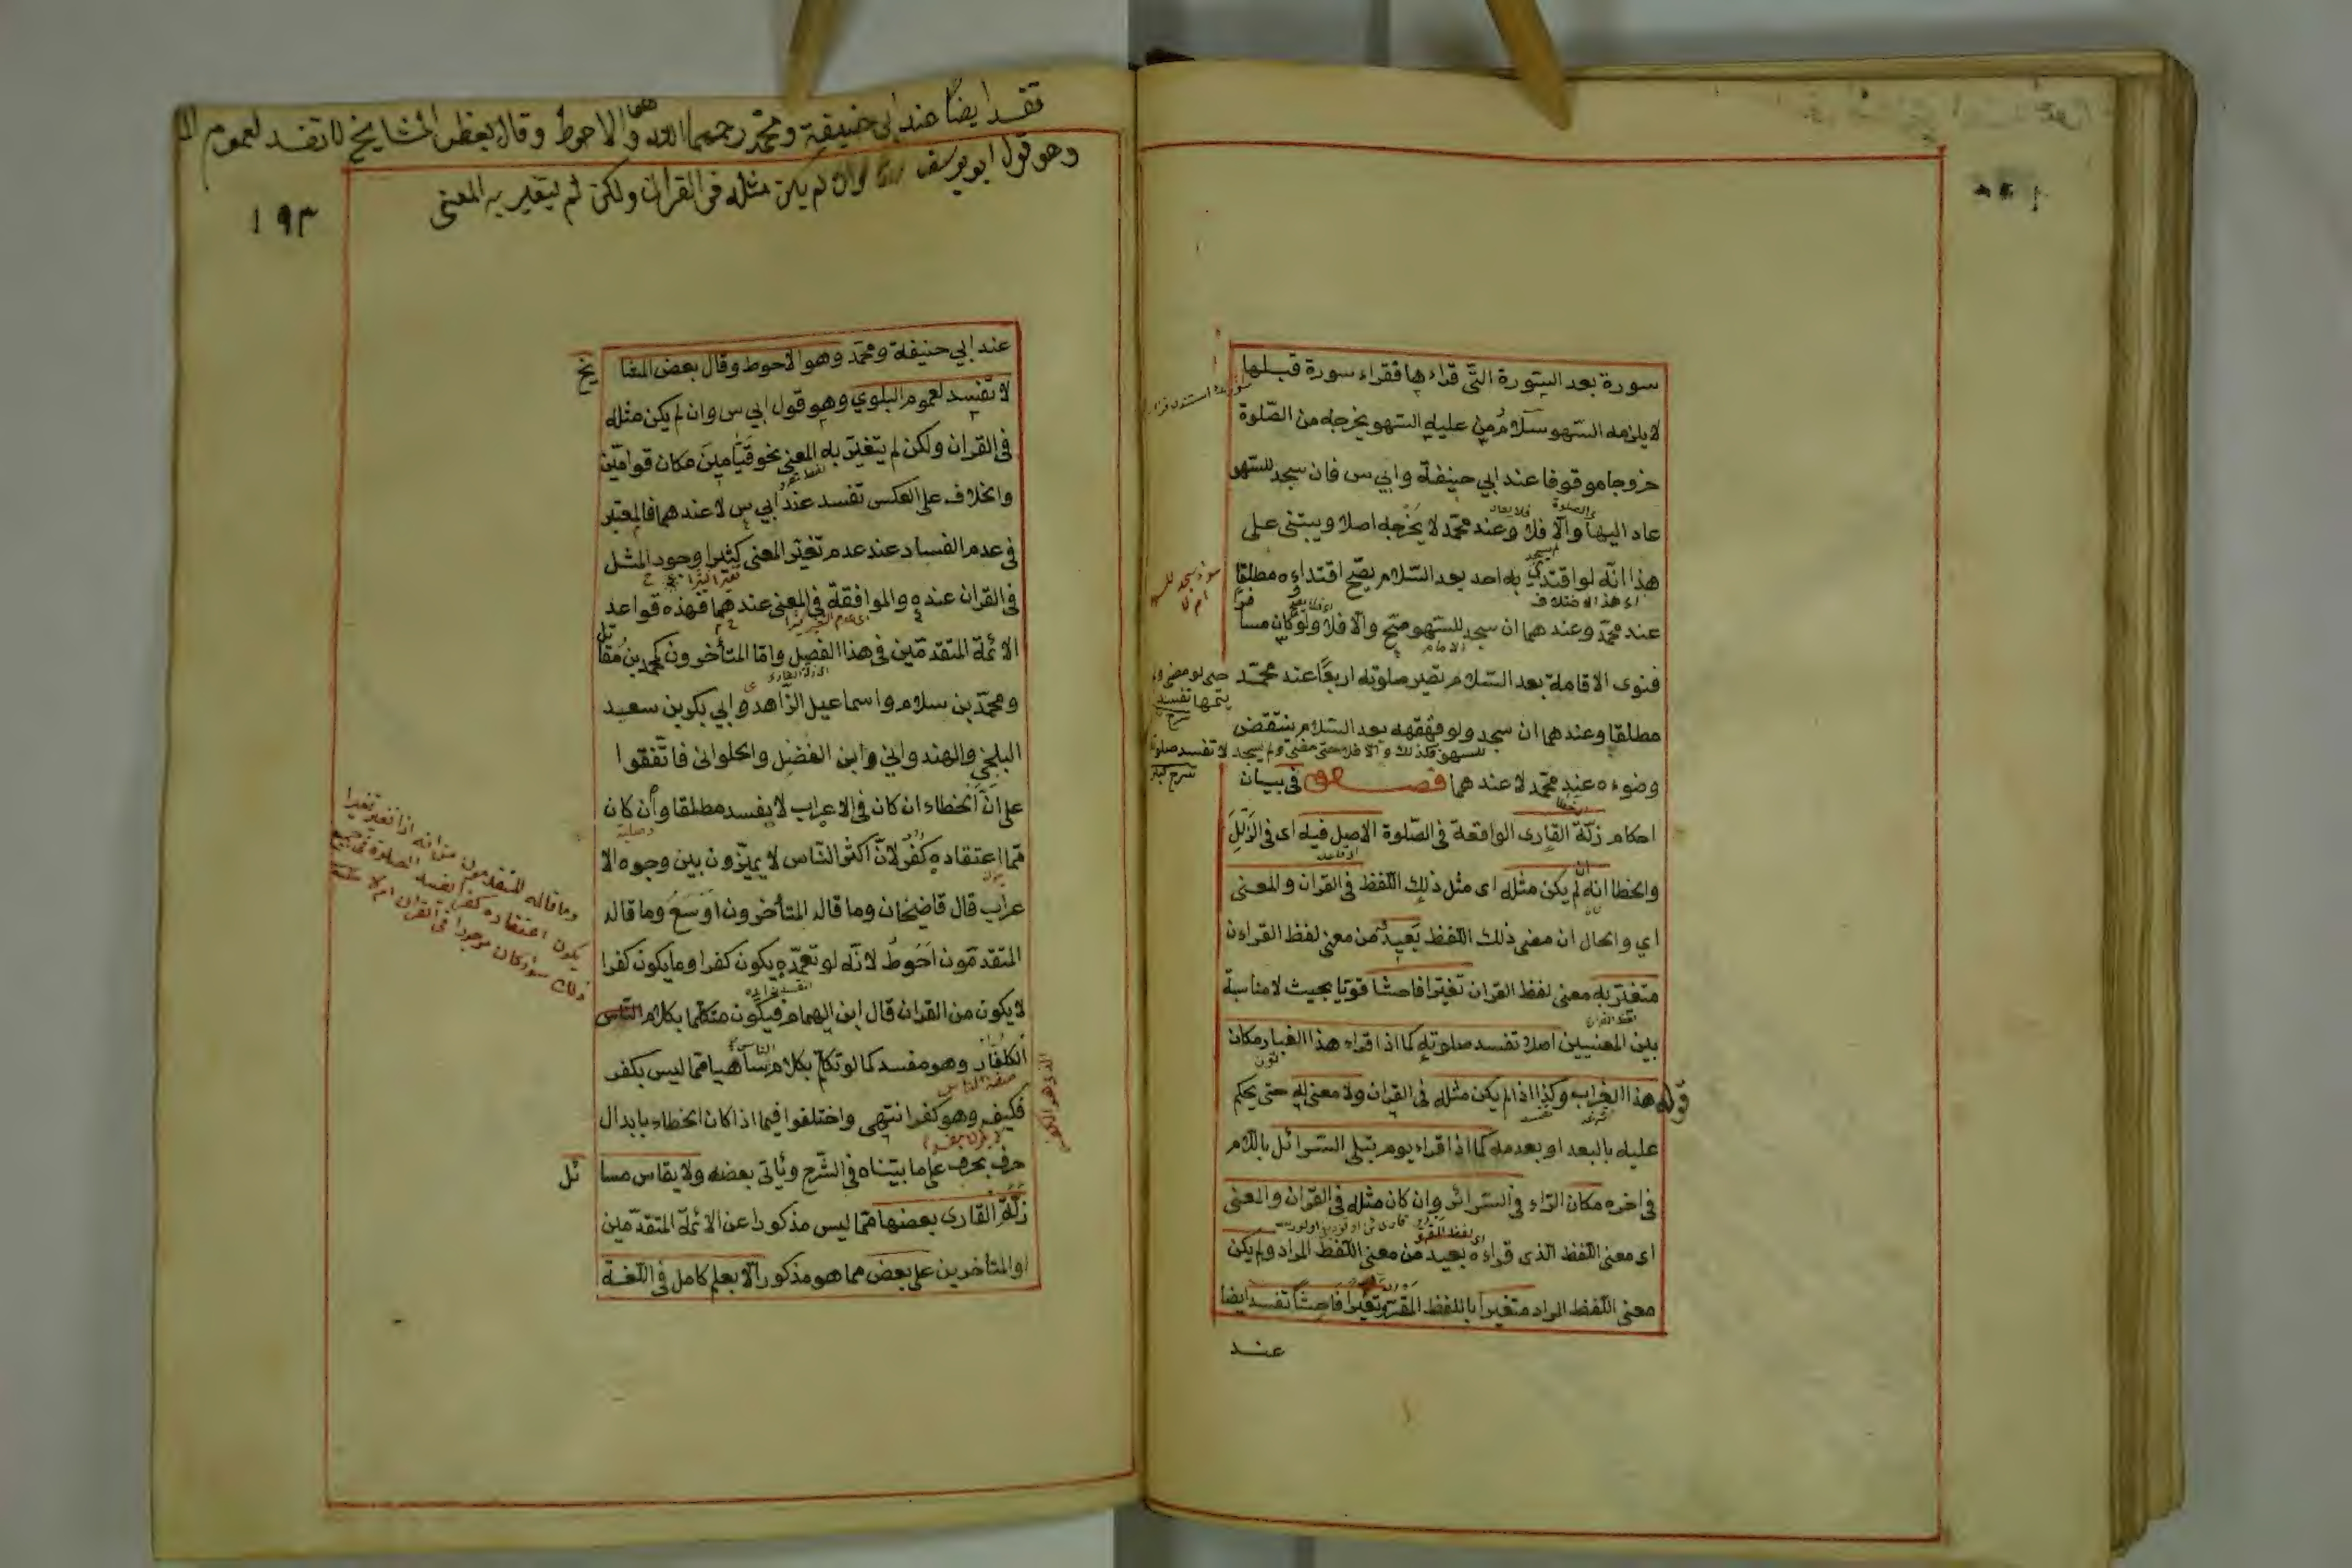 سورة بعد السورة التى قراءها فقراء سورة قبلها
لا يلزمه السهو سلام من عليه السهو يخرجه من الصلوة
خروجا موقوفا عند ابي حنيفة وابي س فان سجد للسهو
عاد اليها والا فلا وعند محمد لا يخرجه اصلا ويبتنى على
هذا انه لو اقتدى به احد بعد السلام يصح اقتداءه مطلقا
عند محمد وعندهما ان سجد للسهو صح والا فلا ولو كان مسا
فر
فنوى الاقامة بعد السلام تصير صلوته اربعا عند محمد
مطلقا وعندهما ان سجد ولو قهقهه بعد السلام ينتقض
وضوءه عند محمد لا عندهما فصل فى بيان
احكام زلة القارى الواقعة فى الصلوة الاصل فيه اى فى الزلل
والخطا انه ان لم يكن مثله اى مثل ذلك اللفظ فى القران والمعنى
اي والحال ان معنى ذلك اللفظ بعيد من معنى لفظ القراءن
متغير به معنى لفظ القران تغيرا فاحشا قويا بحيث لا مناسبة
بين المعنيين اصلا تفسد صلوته كما اذا قراء هذا الغبار مكان
قوله هذا الغراب وكذا اذا لم يكن مثله فى القران ولا معنى له حتى يحكم
عليه بالبعد او بعدمه كما اذا قراء يوم تبلى السرائل باللام
فى اخره مكان الراء فى السرائر وان كان مثله فى القران والمعنى
اى معنى اللفظ الذى قراءه بعيد من معنى اللفظ المراد ولم يكن
معنى اللفظ المراد متغيرا باللفظ المقرو تغيرا فاحشا تفسد ايضا
عند
حتى لو مضى
يتمها تفسد
شرح
للسهو فكذلك والا فلا حتى مضى ولم يسجد لا تفسد صلوته
تفسد ايضا عند ابى حنيفة ومحمد رحمهما الله وهو الاحوط وقال بعض المشايخ لا تفسد لعموم
وهو قول ابو يوسف وان لم يكن مثله فى القران ولكن لم يتغير به المعنى
١٩٣
عند ابي حنيفة ومحمد وهو الاحوط وقال بعض المشا
يخ
لا تفسد لعموم البلوي وهو قول ابي س وان لم يكن مثله
فى القران ولكن لم يتغير به المعنى نحو قيامين مكان قوامين
والخلاف على العكس تفسد عند ابي س لا عندهما فالمعتبر
فى عدم الفساد عند عدم تغير المعنى كثيرا وجود المثل
فى القران عنده والموافقة فى المعنى عندهما فهذه قواعد
الائمة المتقدمين فى هذا الفصل واما المتأخرون كمحمد بن مقا
تل
ومحمد بن سلام واسماعيل الزاهد وابي بكر بن سعيد
البلخي والهندواني وابن الفضل والحلوانى فاتفقوا
على ان الخطاء ان كان فى الاعراب لا يفسد مطلقا وان كان
مما اعتقاده كفر لان اكثر الناس لا يميزون بين وجوه الا
عراب قال قاضيخان وما قاله المتأخرون اوسع وما قاله
المتقدمون احوط لانه لو تعمده يكون كفرا وما يكون كفرا
لا يكون من القران قال ابن الهمام فيكون متكلما بكلام الناس
الكفار وهو مفسد كما لو تكلم بكلام الناس ساهيا مما ليس بكفر
فكيف وهو كفر انتهى واختلفوا فيما اذا كان الخطاء بابدال
حرف بحرف على ما بيناه فى الشرح ويأتى بعضه ولا يقاس مسا
ئل
زلة القارى بعضها مما ليس مذكورا عن الائمة المتقدمين
او المتأخرين على بعض مما هو مذكور الا بعلم كامل فى اللغة
وما قاله المتقدمون من انه اذا تغير تغيرا
يكون اعتقاده كفرا تفسد الصلوة فى جميع
ذلك سواء كان موجودا فى القران ام لا